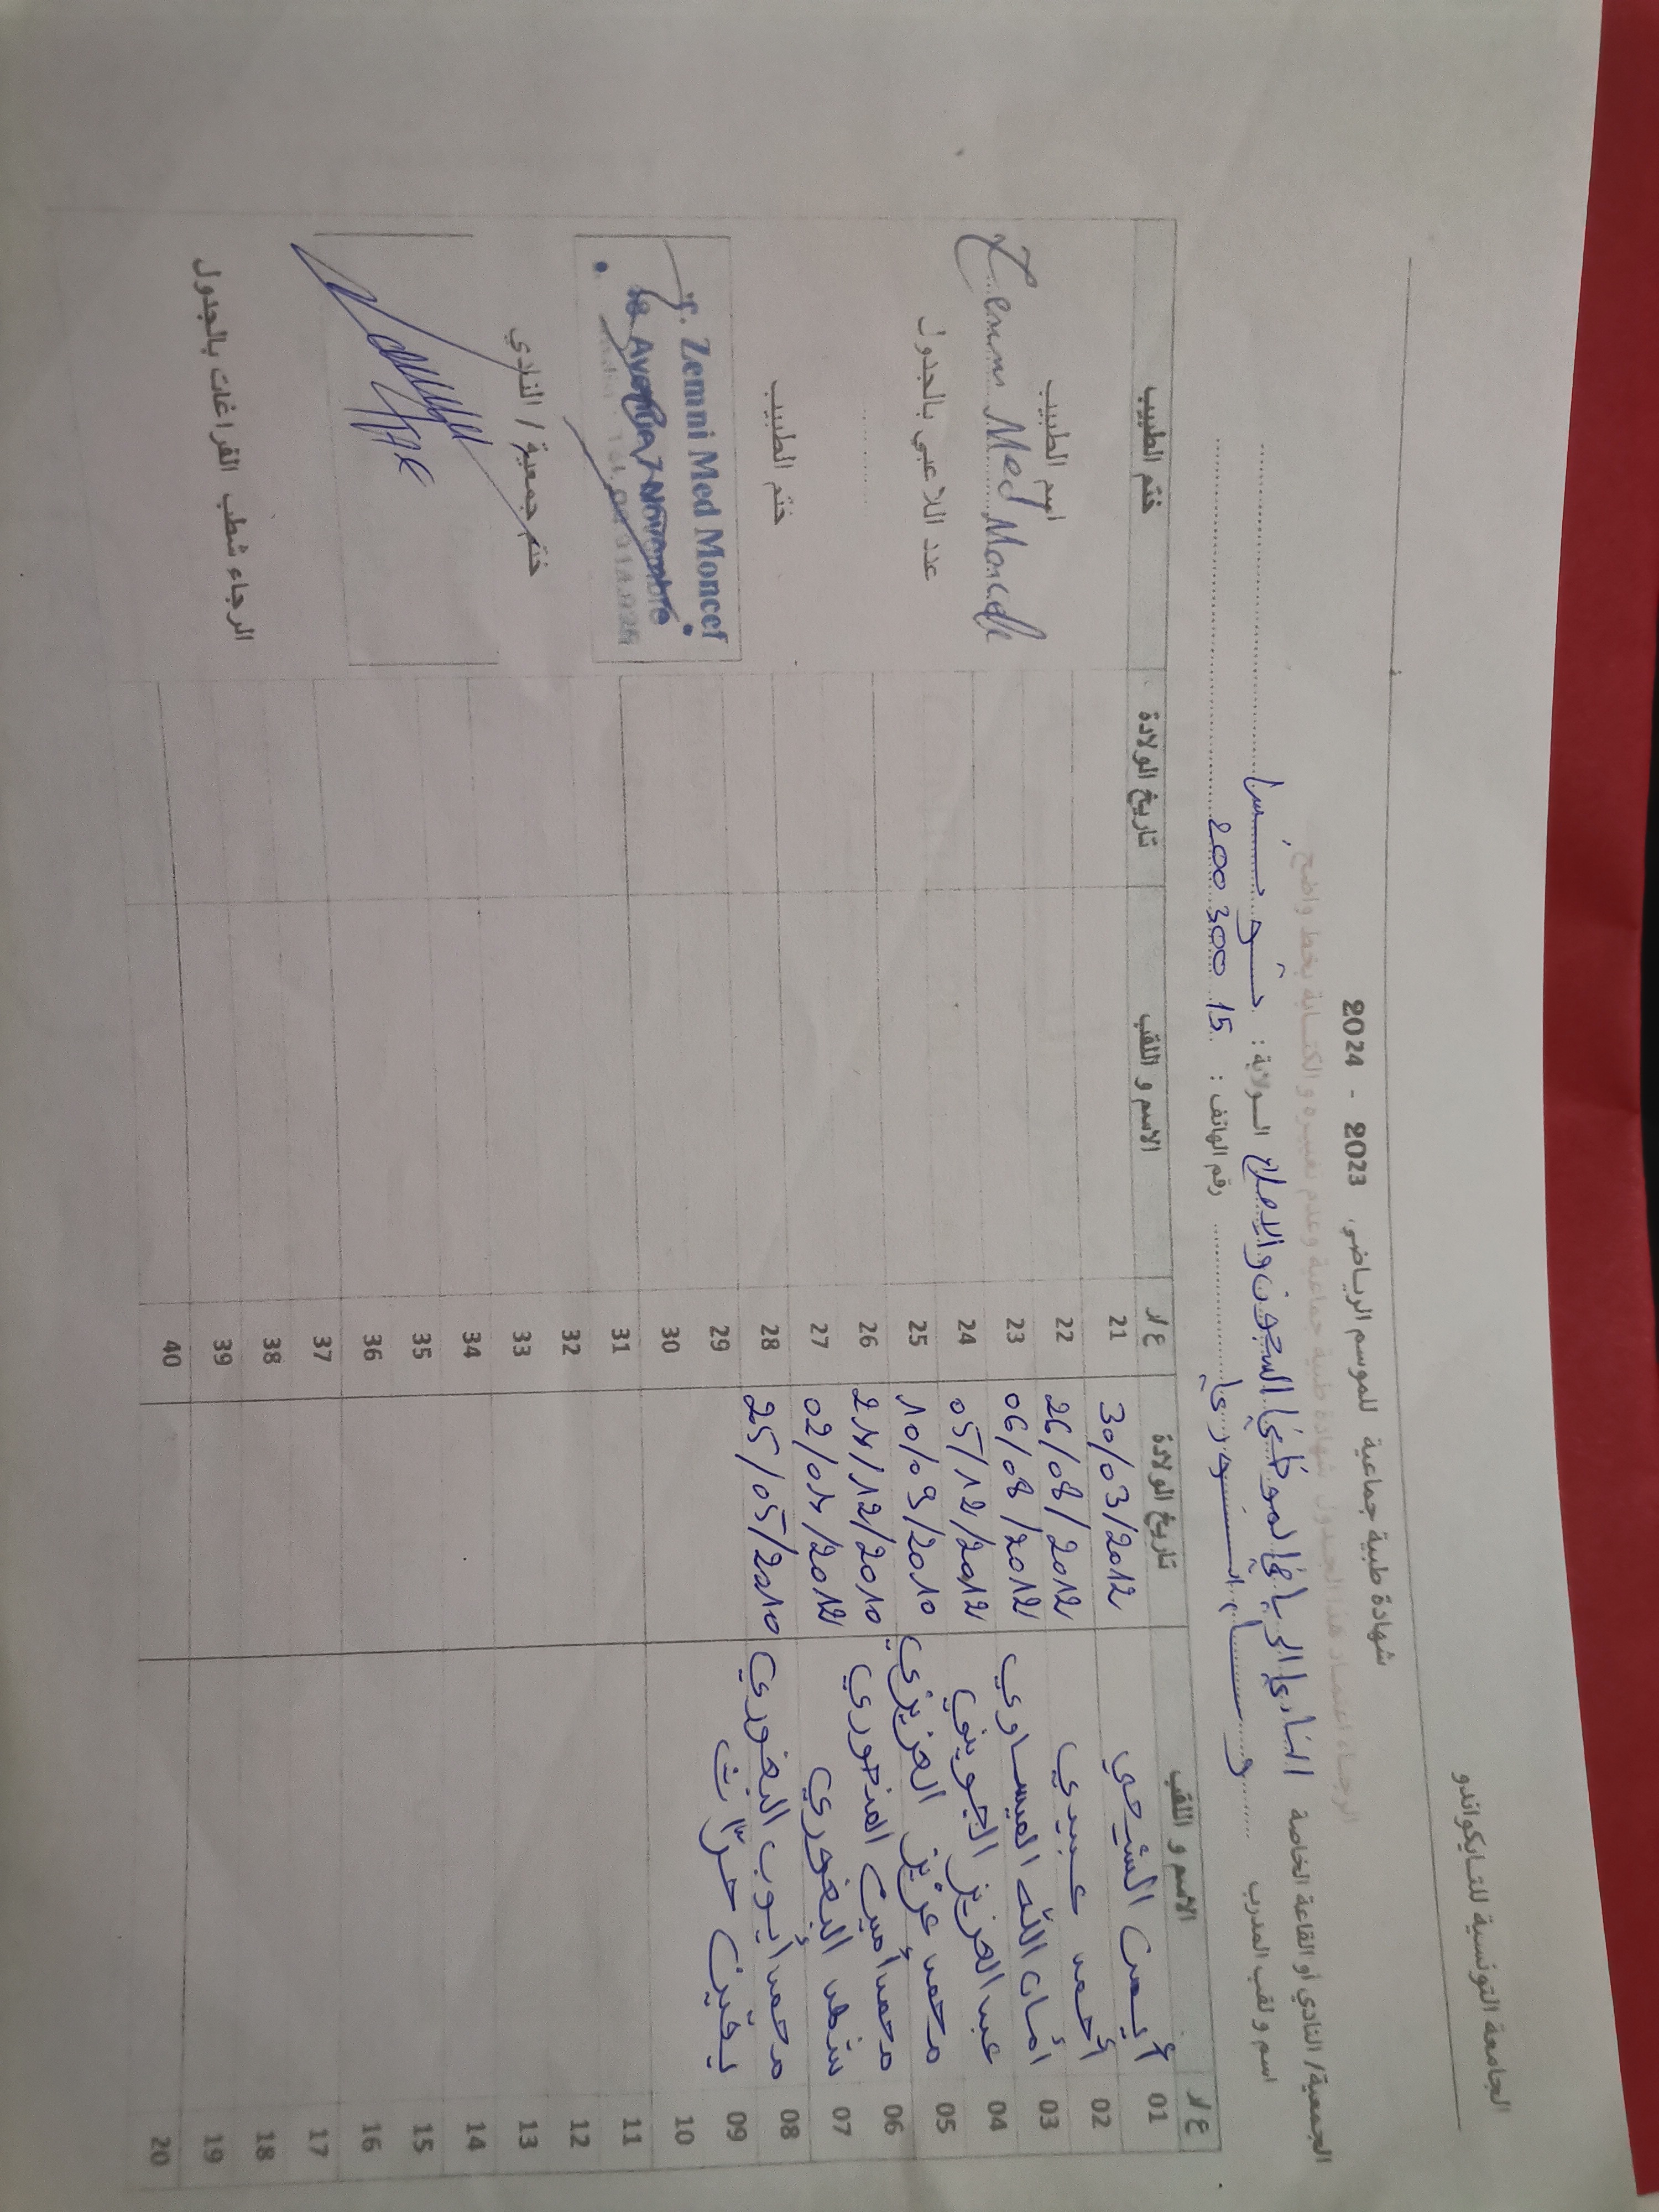 الجامعة التونسية للتايكواندو
شهادة طبية جماعية للموسم الرياضي 2023 - 2024
الرجاء اعتماد هذا الجدول شهادة طبية جماعية وعدم تغييره و الكتابة بخط واضح
الجمعية/ النادي أو القاعة الخاصة النادي الرياضي لموظفي السجون والإصلاح الولاية :
اسم و لقب المدرب رقم الهاتف : 200 300 15
ع/ر الاسم و اللقب تاريخ الولادة ع/ر الاسم و اللقب تاريخ الولادة ختم الطبيب
01 أيمن الشيحي 30/03/2012 21
02 أحمد عبيدي 26/08/2012 22
03 أمان الله العيساوي 06/08/2012 23
04 عبد العزيز الجويني 05/12/2012 24
05 محمد عزيز العزيزي 10/09/2010 25
06 محمد أمين المنصوري 12/2010 26
07 اليغوري 2012 27
08 محمد أيوب اليغوري 25/05/2010 28
09 29
10 30
11 31
12 32
13 33
14 34
15 35
16 36
17 37
18 38
19 39
20 40
اسم الطبيب
Zemni Med Moncef
عدد اللاعبي بالجدول
ختم الطبيب
Zemni Med Moncef
Avenue 7 Novembre
ختم جمعية / النادي
الرجاء شطب الفراغات بالجدول